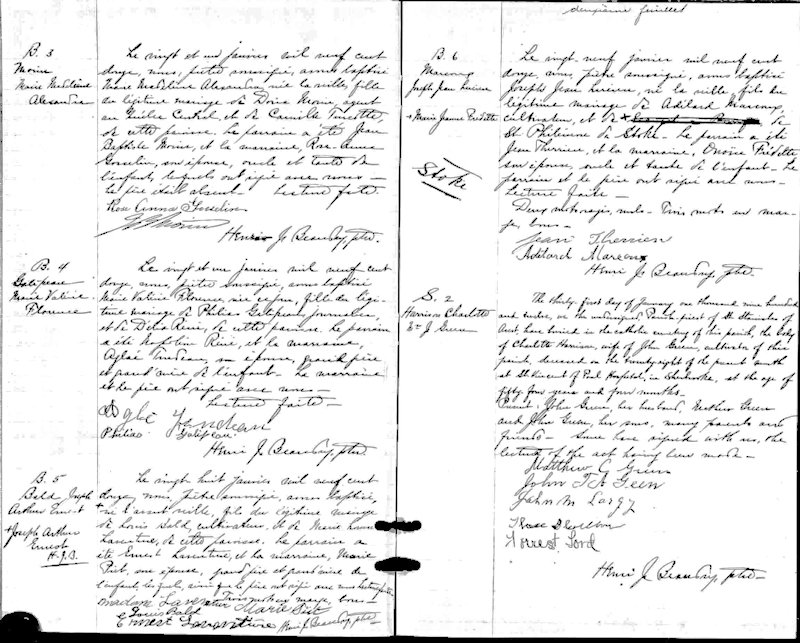 deuxième feuillet
B. 3
Moin
Marie Madeleine
Alexandra
Le vingt et un janvier mil neuf cent
douze, nous, prêtre soussigné, avons baptisé
Marie Madeleine Alexandra, née la veille, fille
du légitime mariage de agent
au Québec Central, et de Camille
de cette paroisse. Le parrain a été Jean
Baptiste et la marraine, Rose-Anna
Gosselin, son épouse, oncle et tante de
l'enfant, lesquels ont signé avec nous —
Le père était absent. Lecture faite
Rose Anna Gosselin
Henri J. Beaudry, ptre.
B. 4
Galipeau
Marie Valérie
Florence
Le vingt et un janvier mil neuf cent
douze, nous, prêtre soussigné, avons baptisé
Marie Valérie Florence, née fille du légi-
time mariage de Philias Galipeau, journalier,
et de Délia de cette paroisse. Le parrain
a été Napoléon et la marraine,
Aglaé son épouse, grand père
et grand'mère de l'enfant. La marraine
et le père ont signé avec nous —
Lecture faite —
Aglaé
Philias Galipeau
Henri J. Beaudry, ptre.
B. 5
Bald Joseph
Arthur Ernest
+ Joseph Arthur
Ernest
H. J. B.
Le vingt huit janvier mil neuf cent
douze, nous, prêtre soussigné, avons baptisé,
+ né l'avant veille, fils du légitime mariage
de Louis Bald, cultivateur, et de Marie
de cette paroisse. Le parrain a
été Ernest et la marraine, Marie
son épouse, grand père et grand'mère de
l'enfant, lesquels, ainsi que le père ont signé avec nous Lecture faite
Trois mots en marge, bons —
Madame Marie
Louis Bald
Ernest
Henri J. Beaudry, ptre —
B. 6
Marcoux
Joseph Jean Lucien
+ Marie Jeanne Fréchette
Stoke
Le vingt-neuf janvier mil neuf cent
douze, nous, prêtre soussigné, avons baptisé
Joseph Jean Lucien, né la veille, fils du
légitime mariage de Adélard Marcoux,
cultivateur, et de + de
St Philémon de Stoke. Le parrain a été
Jean Therrien, et la marraine,
son épouse, oncle et tante de l'enfant. Le
parrain et le père ont signé avec nous.
Lecture faite —
Deux mots rayés, nuls. Trois mots en mar-
ge, bons —
Jean Therrien
Adélard Marcoux
Henri J. Beaudry, ptre.
S. 2
Harrison Charlotte
J. Green
The thirty first day of January one thousand nine hundred
and twelve, we the undersigned Parish priest of St Stanislas of
Ascot, have buried in the catholic cemetery of this parish, the body
of Charlotte Harrison, wife of John Green, cultivator of this
parish, deceased on the twenty eight of the present month
at St Vincent of Paul Hospital, in Sherbrooke, at the age of
fifty four years and four months —
Present: John Green, her husband, Matthew Green
and John Green, her sons, many parents and
friends — Some have signed with us, the
lecture of the act having been made —
Matthew G Green
John Green
John M
Forrest Lord
Henri J. Beaudry, ptre —